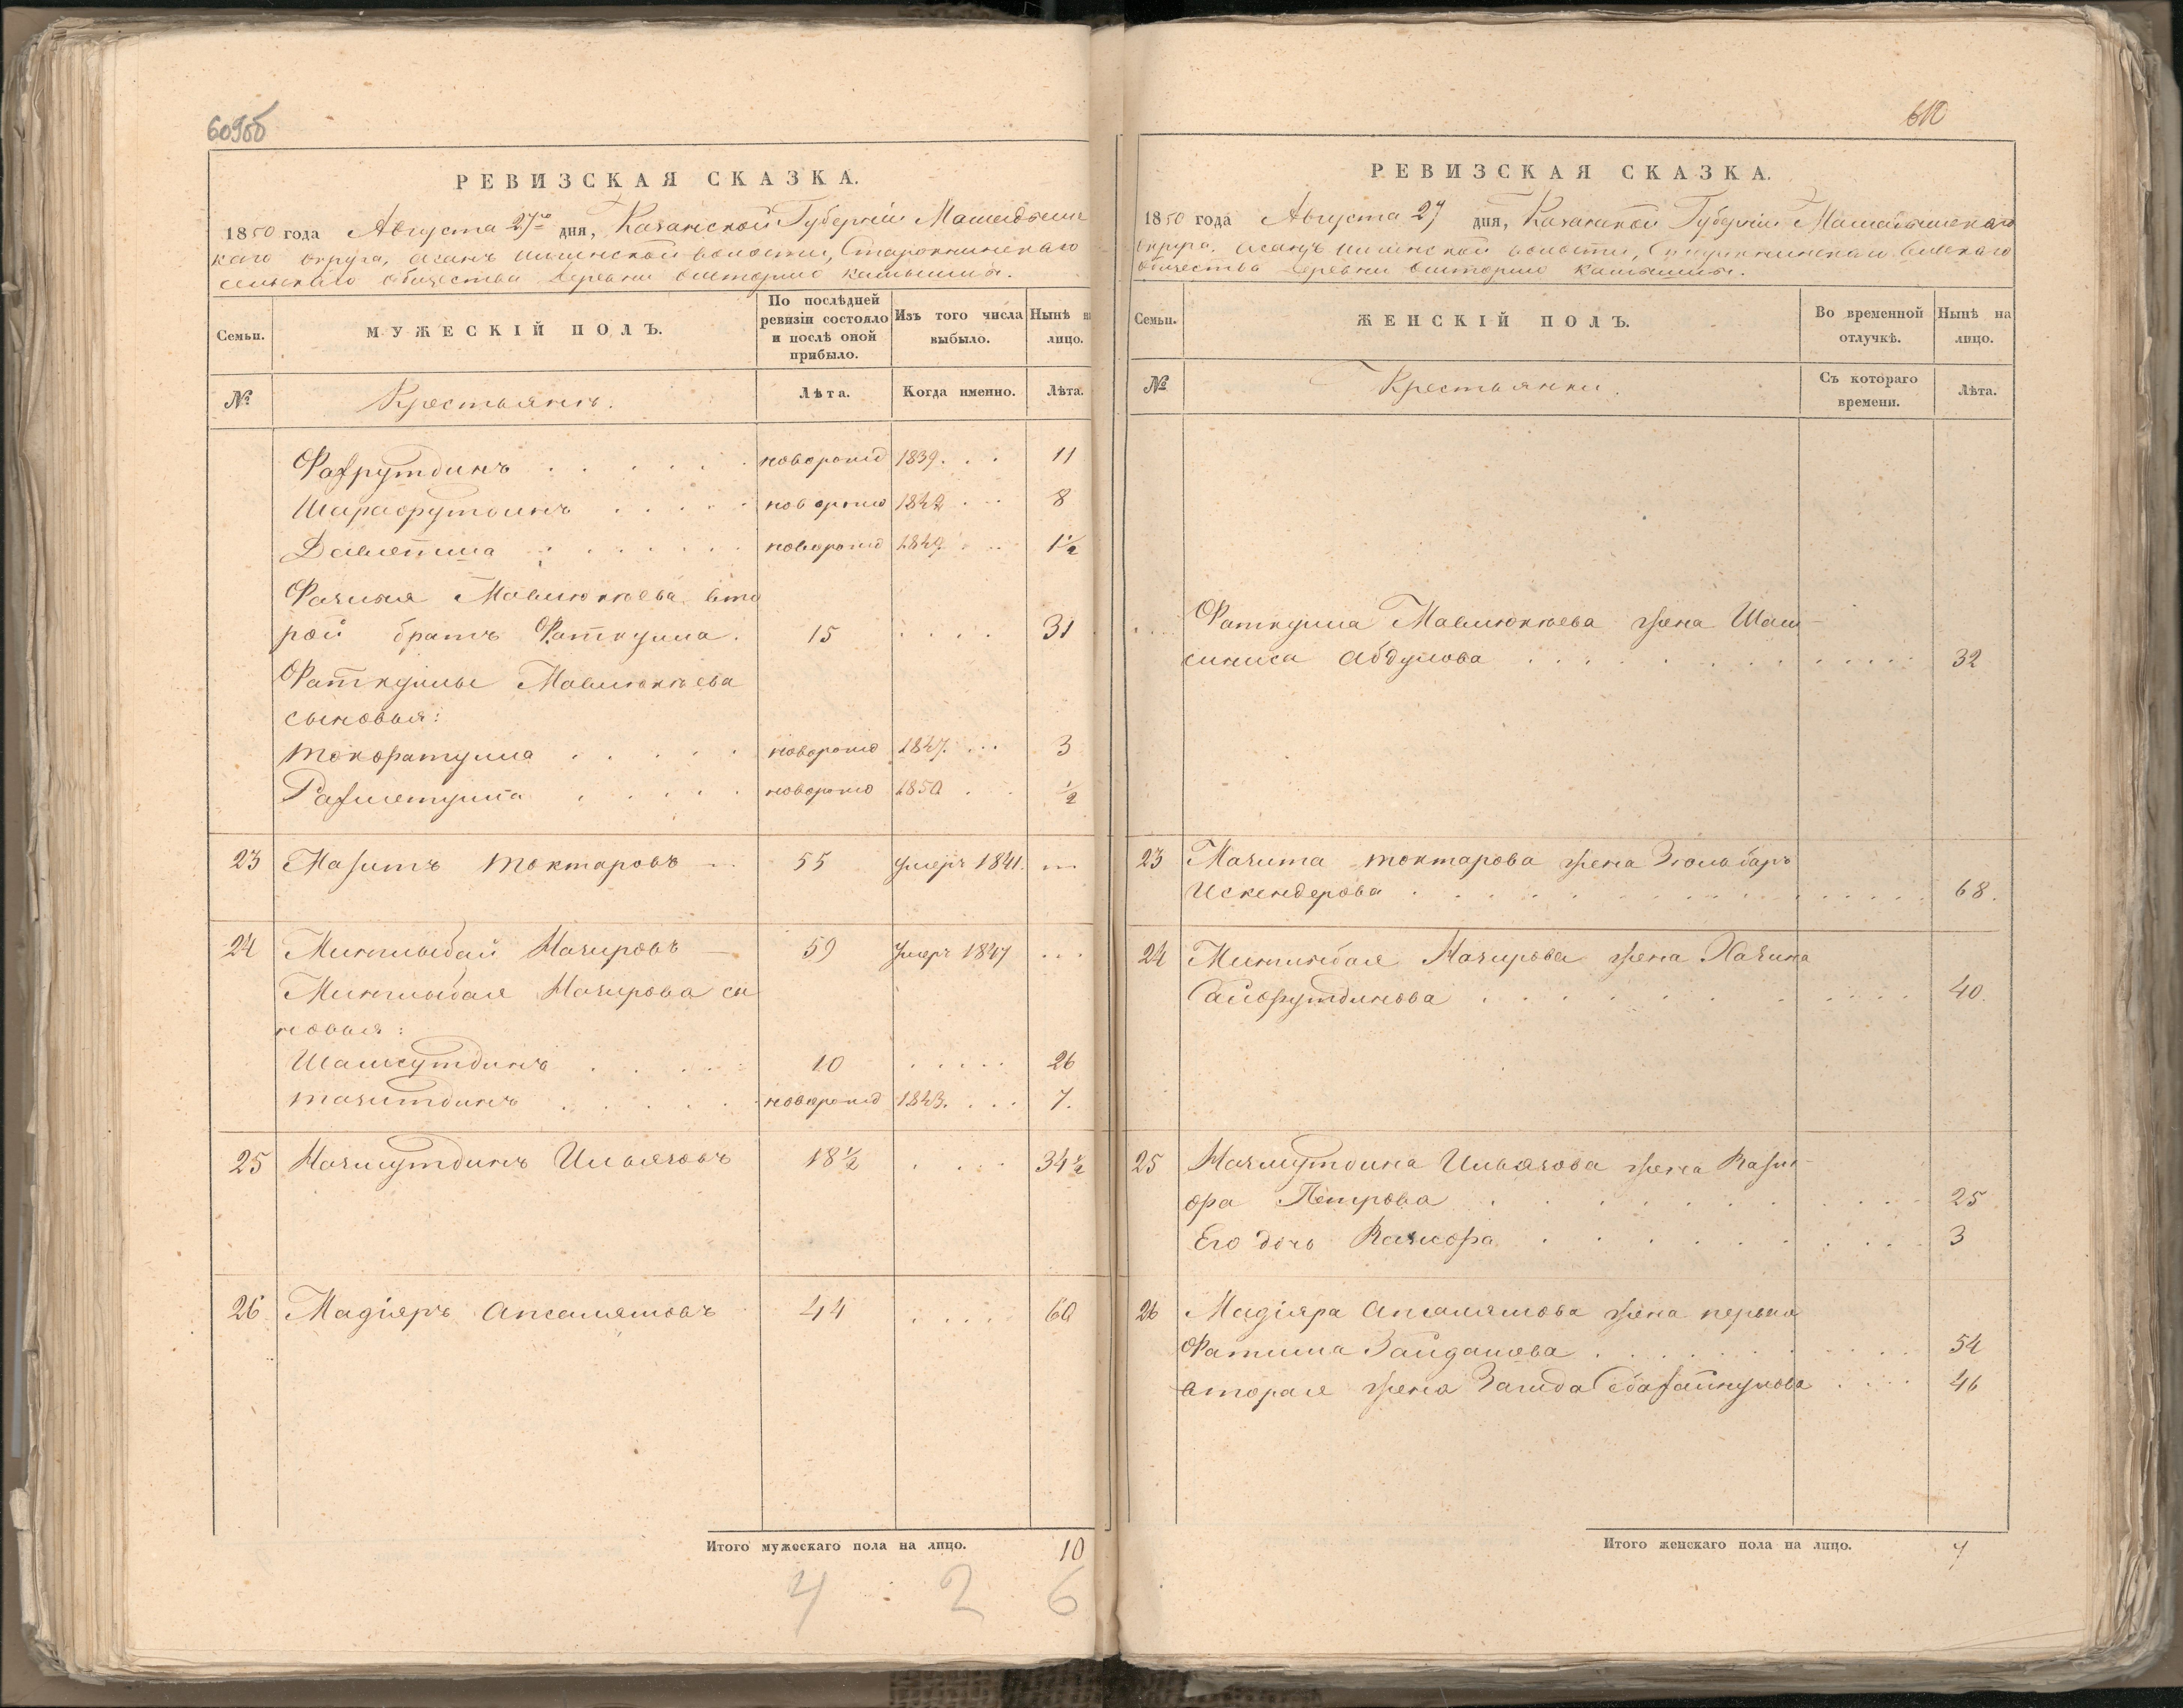 609об
РЕВИЗСКАЯ СКАЗКА.
1850 года Августа 27го дня, Казанской Губерніи Мамадышс
каго округа, Асанъ волости, Старокнинскаго
сельскаго общества деревни
Семьи.
МУЖЕСКІЙ ПОЛЪ.
По послѣдней ревизіи состояло и послѣ оной прибыло.
Изъ того числа выбыло.
Нынѣ на лицо.
№
Крестьянъ.
Лѣта.
Когда именно.
Лѣта.
Фахрутдинъ . . . . . новорожд 1839 . . . 11
Шарафутдинъ . . . . . новорожд 1842 . . . 8
Давлетша . . . . . новорожд 1849 . . . 1½
Мавлюкѣева вто
рой братъ Фаткулла . 15 . . . . 31
Фаткуллы Мавлюкѣева
сыновья:
. . . . . новорожд 1847 . . . 3
Рахметулла . . . . . новорожд 1850 . . ½
23 Мазитъ Токтаровъ 55 умеръ 1841. ...
24 Минлыбай Назировъ 59 умеръ 1847 ...
Минлыбая Назирова сы
новья:
Шамсутдинъ . . . . 10 . . . . . 26
Тазитдинъ . . . . . новорожд 1843. . . . 7.
25 Назмутдинъ Ильязовъ 18½ . . . . 34½
26 Мадіяръ Апсалямовъ 44 . . . . 60
Итого мужескаго пола на лицо. 10
4 : 2 6
610
РЕВИЗСКАЯ СКАЗКА.
1850 года Августа 27 дня, Казанской Губерніи Мамадышскаго
округа, Асанъ волости, Старокнинскаго сельскаго
общества деревни
Семьи.
ЖЕНСКІЙ ПОЛЪ.
Во временной отлучкѣ.
Нынѣ на лицо.
№
Крестьянки.
Съ котораго времени.
Лѣта.
... Фаткулла Мавлюкѣева жена Шам-
Абдулова . . . . . . . . . . 32
23 Мазита Токтарова жена Зюльбаръ
Искендерова . . . . . . . . . . 68.
24 Минлибая Назирова жена Хазина
Сайфутдинова . . . . . . . . . 40.
25 Назмутдина Ильязова жена
Петрова . . . . . . . . . 25
Его дочь . . . . . . . . . 3
26 Мадіяра Апсалямова жена первая
Фатима . . . . . . . . 54
вторая жена . . . . 46
Итого женскаго пола на лицо. 7